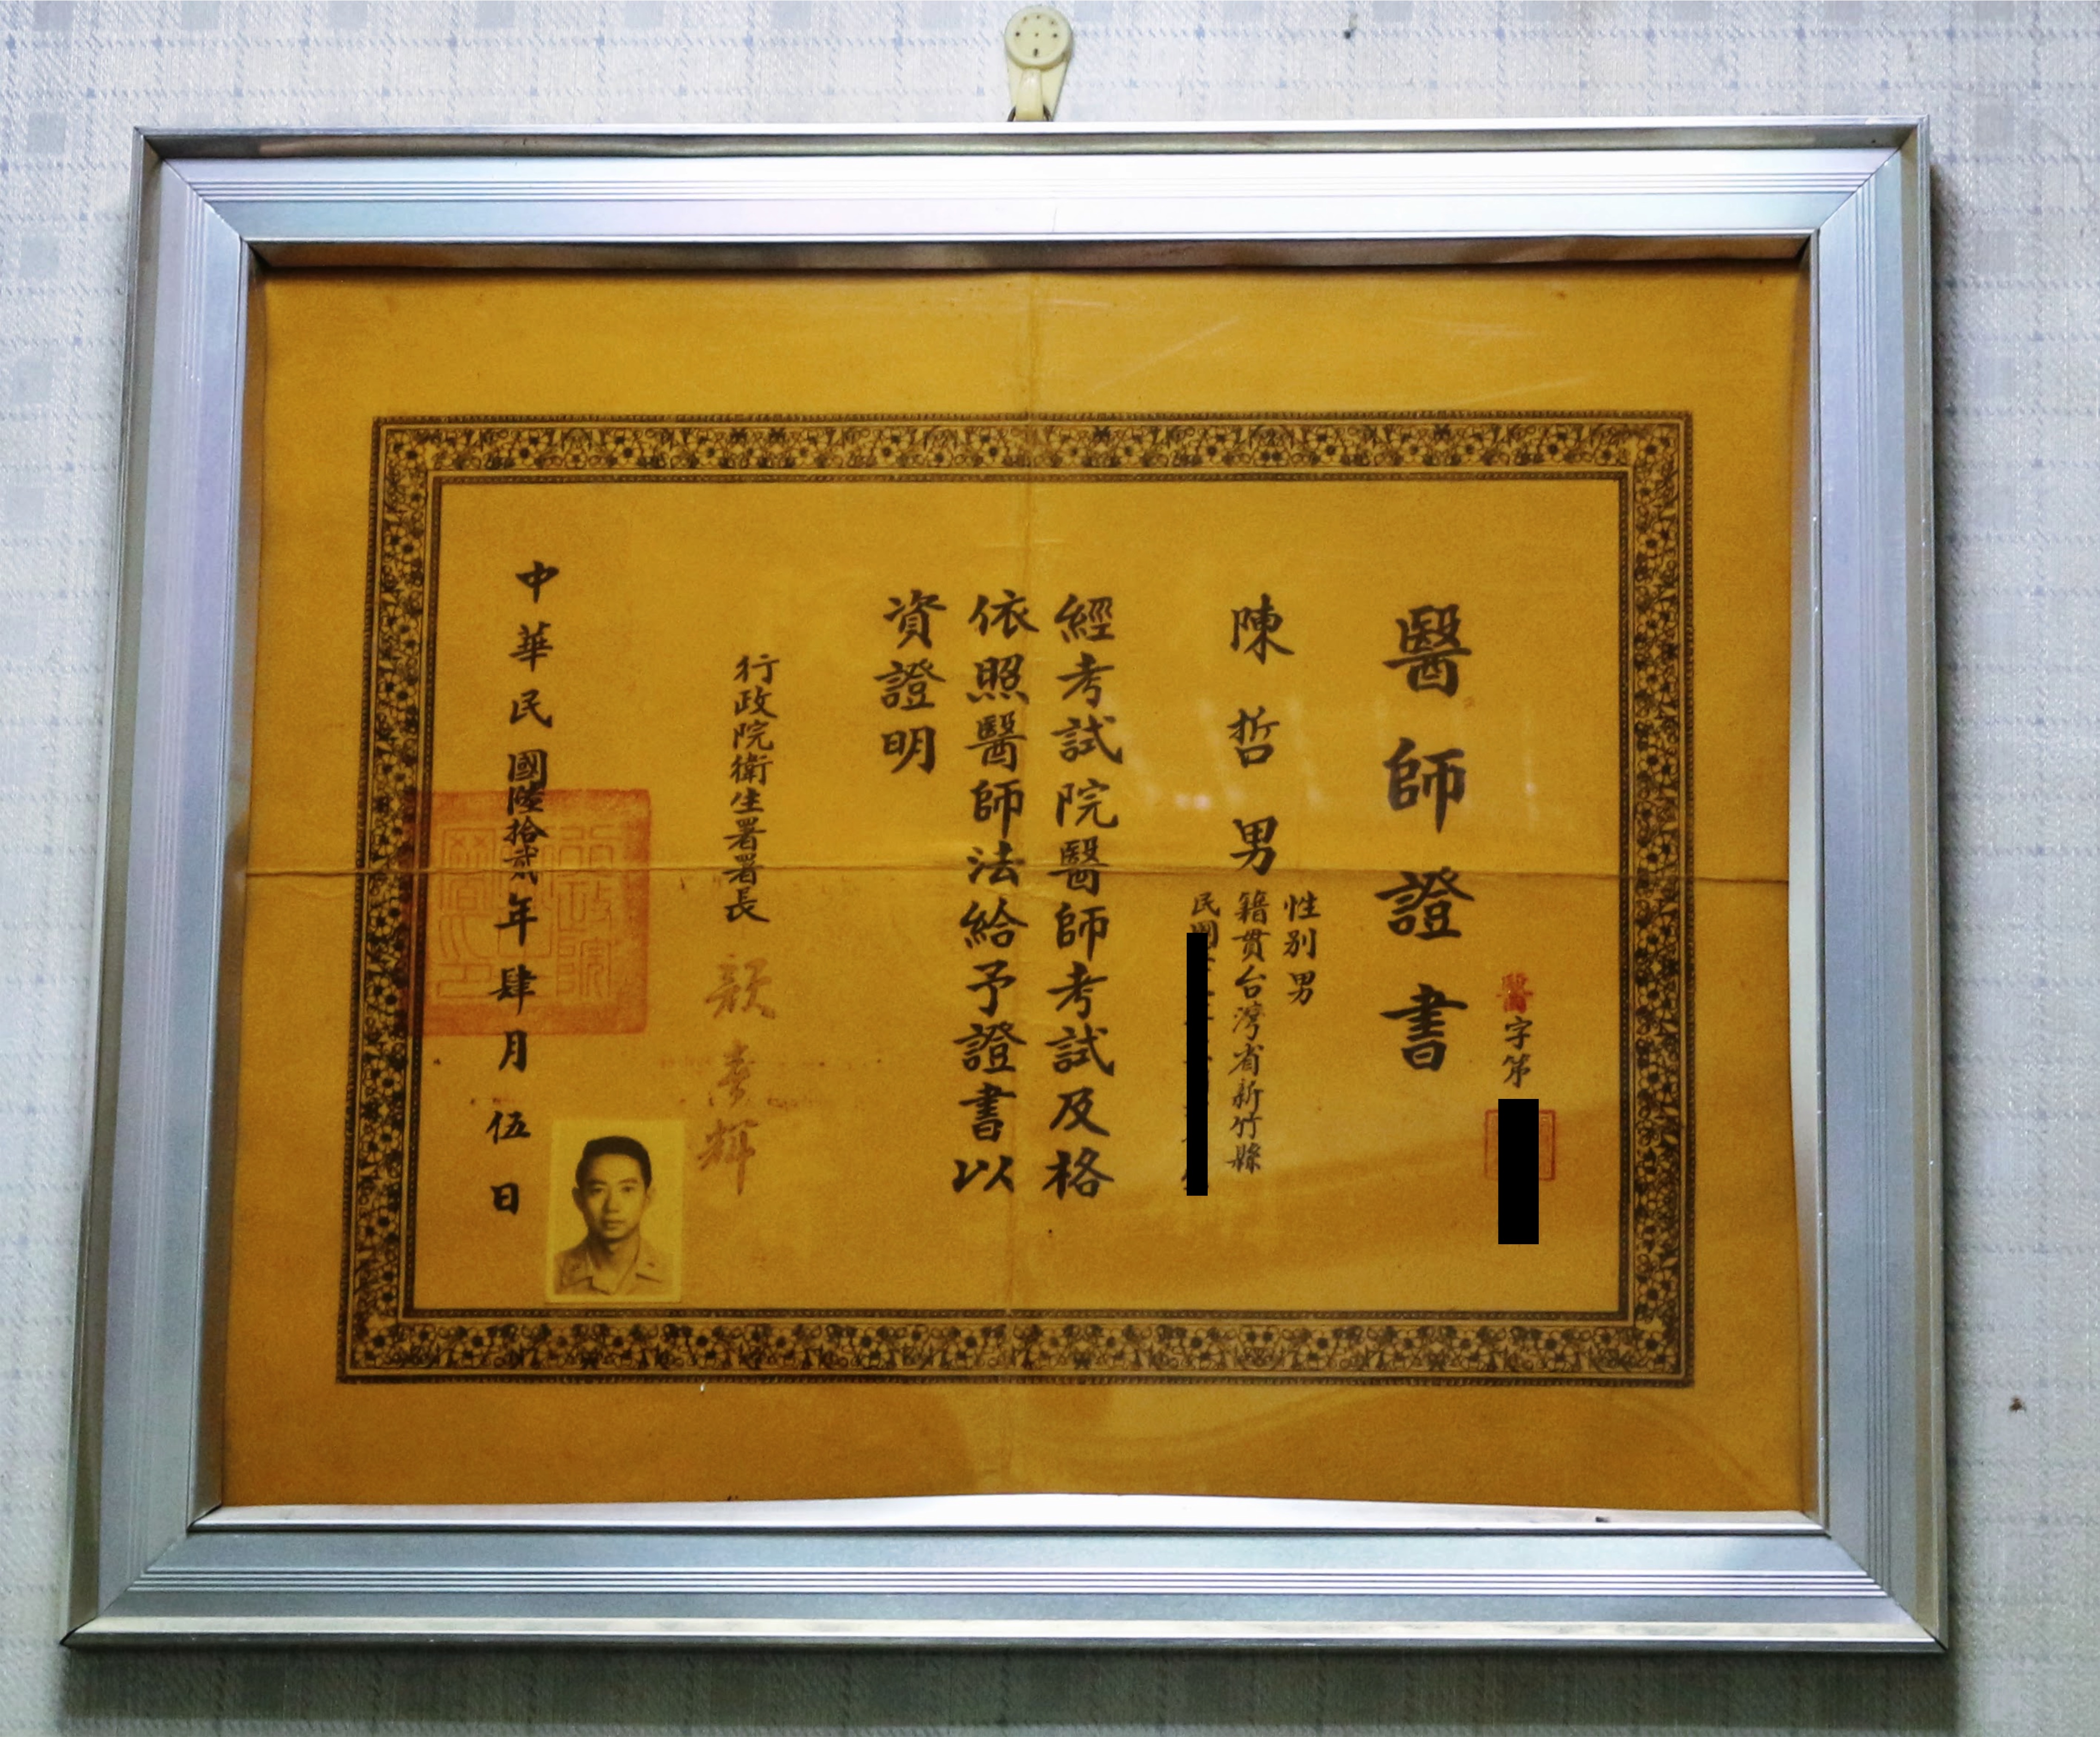 醫字第
醫師證書
陳哲男
性別男
籍貫台灣省新竹縣
民國
經考試院醫師考試及格
依照醫師法給予證書以
資證明
行政院衛生署署長
顏春輝
中華民國陸拾貳年肆月伍日